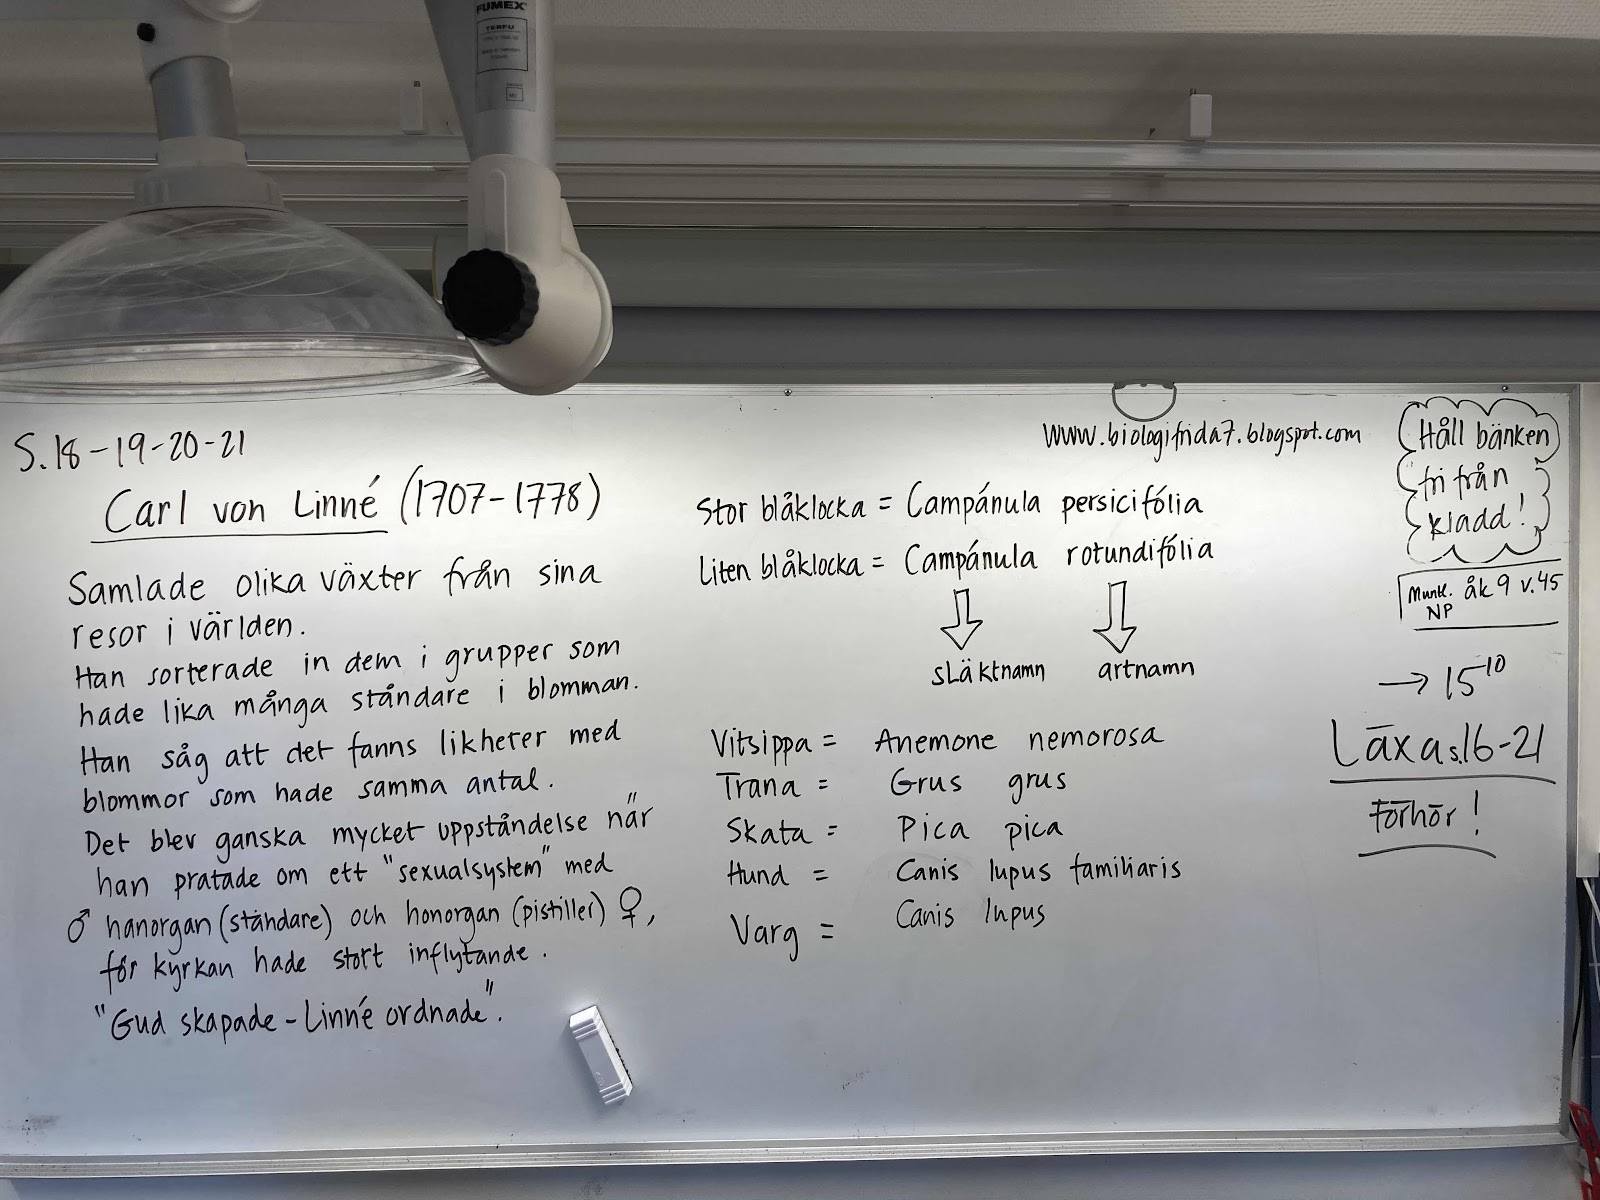 FUMEX
TERFU
S. 18-19-20-21
Carl von Linné (1707-1778)
Samlade olika växter från sina
resor i världen.
Han sorterade in dem i grupper som
hade lika många ståndare i blomman.
Han såg att det fanns likheter med
blommor som hade samma antal.
Det blev ganska mycket uppståndelse när
han pratade om ett "sexualsystem" med
♂ hanorgan (ståndare) och honorgan (pistiller) ♀,
för kyrkan hade stort inflytande.
"Gud skapade - Linné ordnade".
www.biologifrida7.blogspot.com
Stor blåklocka = Campánula persicifólia
Liten blåklocka = Campánula rotundifólia
släktnamn artnamn
Vitsippa = Anemone nemorosa
Trana = Grus grus
Skata = Pica pica
Hund = Canis lupus familiaris
Varg = Canis lupus
Håll bänken
fri från
kladd!
Muntl. åk 9 v.45
NP
→ 15 10
Läxa s.16-21
Förhör!